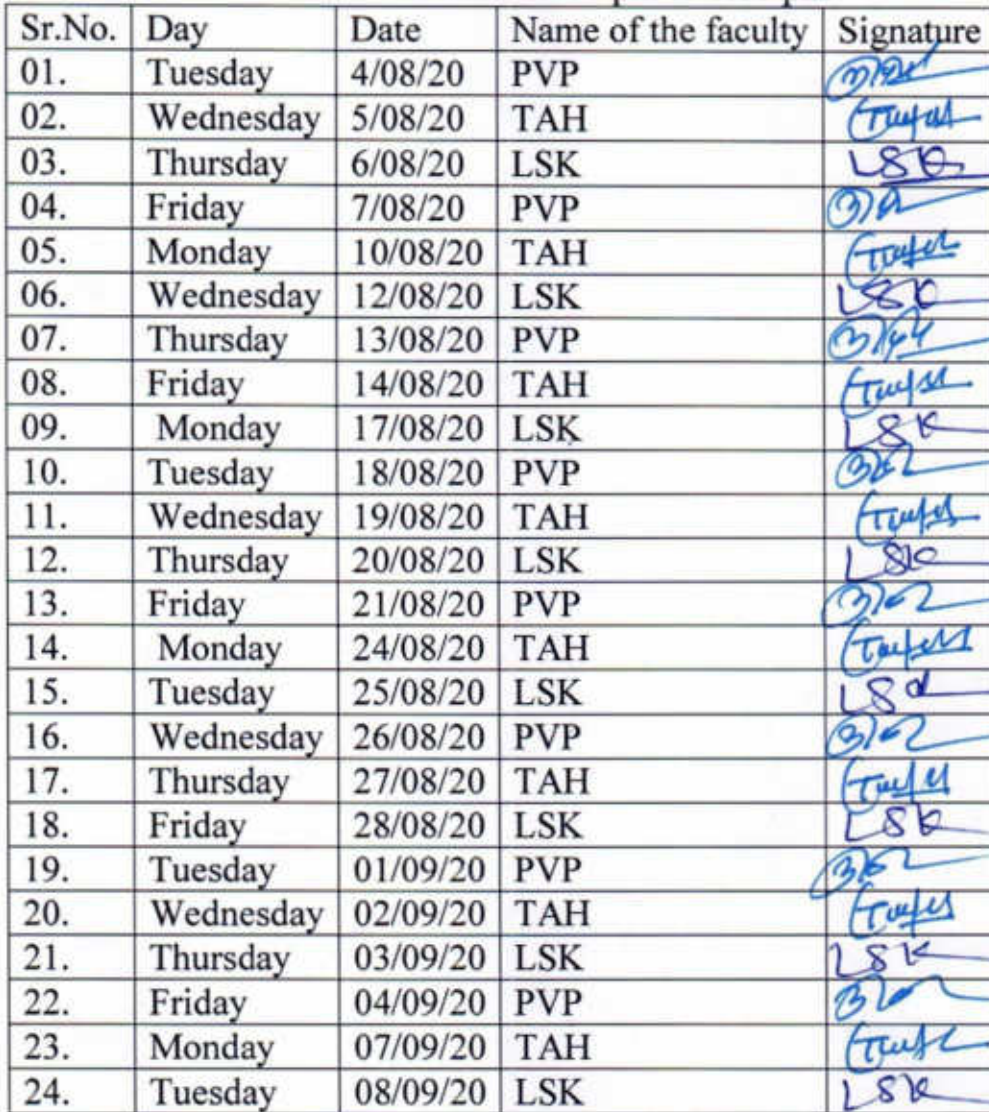 Sr.No. Day Date Name of the faculty Signature
01. Tuesday 4/08/20 PVP
02. Wednesday 5/08/20 TAH
03. Thursday 6/08/20 LSK LSK
04. Friday 7/08/20 PVP
05. Monday 10/08/20 TAH
06. Wednesday 12/08/20 LSK LSK
07. Thursday 13/08/20 PVP
08. Friday 14/08/20 TAH
09. Monday 17/08/20 LSK LSK
10. Tuesday 18/08/20 PVP
11. Wednesday 19/08/20 TAH
12. Thursday 20/08/20 LSK LSK
13. Friday 21/08/20 PVP
14. Monday 24/08/20 TAH
15. Tuesday 25/08/20 LSK LSK
16. Wednesday 26/08/20 PVP
17. Thursday 27/08/20 TAH
18. Friday 28/08/20 LSK LSK
19. Tuesday 01/09/20 PVP
20. Wednesday 02/09/20 TAH
21. Thursday 03/09/20 LSK LSK
22. Friday 04/09/20 PVP
23. Monday 07/09/20 TAH
24. Tuesday 08/09/20 LSK LSK